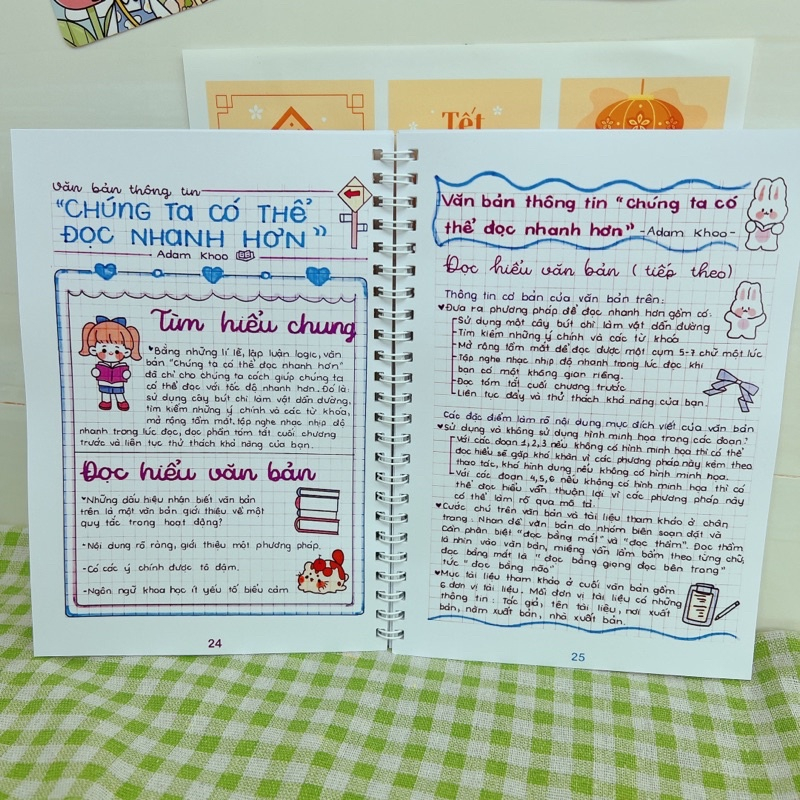 Tết
văn bản thông tin
"CHÚNG TA CÓ THỂ
ĐỌC NHANH HƠN"
Adam Khoo
Tìm hiểu chung
Bằng những lí lẽ, lập luận logic, văn
bản "Chúng ta có thể đọc nhanh hơn"
đã chỉ cho chúng ta cách giúp chúng ta
có thể đọc với tốc độ nhanh hơn. Đó là:
sử dụng cây bút chì làm vật dẫn đường,
tìm kiếm những ý chính và các từ khóa,
mở rộng tầm mắt, tập nghe nhạc nhịp độ
nhanh trong lúc đọc, đọc phần tóm tắt cuối chương
trước và liên tục thử thách khả năng của bạn.
Đọc hiểu văn bản
Những dấu hiệu nhận biết văn bản
trên là một văn bản giới thiệu về một
quy tắc trong hoạt động?
-Nội dung rõ ràng, giới thiệu một phương pháp.
-Có các ý chính được tô đậm.
-Ngôn ngữ khoa học ít yếu tố biểu cảm
24
Văn bản thông tin "Chúng ta có
thể đọc nhanh hơn" -Adam Khoo-
Đọc hiểu văn bản (tiếp theo)
Thông tin cơ bản của văn bản trên:
Đưa ra phương pháp để đọc nhanh hơn gồm có:
Sử dụng một cây bút chì làm vật dẫn đường
Tìm kiếm những ý chính và các từ khóa
Mở rộng tầm mắt để đọc được một cụm 5-7 chữ một lúc
Tập nghe nhạc nhịp độ nhanh trong lúc đọc khi
bạn có một không gian riêng.
Đọc tóm tắt cuối chương trước
Liên tục đẩy và thử thách khả năng của bạn.
Các đặc điểm làm rõ nội dung mục đích viết của văn bản
sử dụng và không sử dụng hình minh họa trong các đoạn?
Với các đoạn 1,2,3 nếu không có hình minh họa thì có thể
đọc hiểu sẽ gặp khó khăn vì các phương pháp này kèm theo
thao tác, khó hình dung nếu không có hình minh họa.
Với các đoạn 4,5,6 nếu không có hình minh họa thì có
thể đọc hiểu vẫn thuận lợi vì các phương pháp này
có thể làm rõ qua mô tả.
Cước chú trên văn bản và tài liệu tham khảo ở chân
trang: Nhan đề văn bản do nhóm biên soạn đặt và
Cần phân biệt "đọc bằng mắt" và "đọc thầm". Đọc thầm
là nhìn vào văn bản, miệng vẫn lẩm bẩm theo từng chữ,
đọc bằng mắt là "đọc bằng giọng đọc bên trong"
tức "đọc bằng não"
Mục tài liệu tham khảo ở cuối văn bản gồm
6 đơn vị tài liệu. Mỗi đơn vị tài liệu có những
thông tin: Tác giả, tên tài liệu, nơi xuất
bản, năm xuất bản, nhà xuất bản.
25